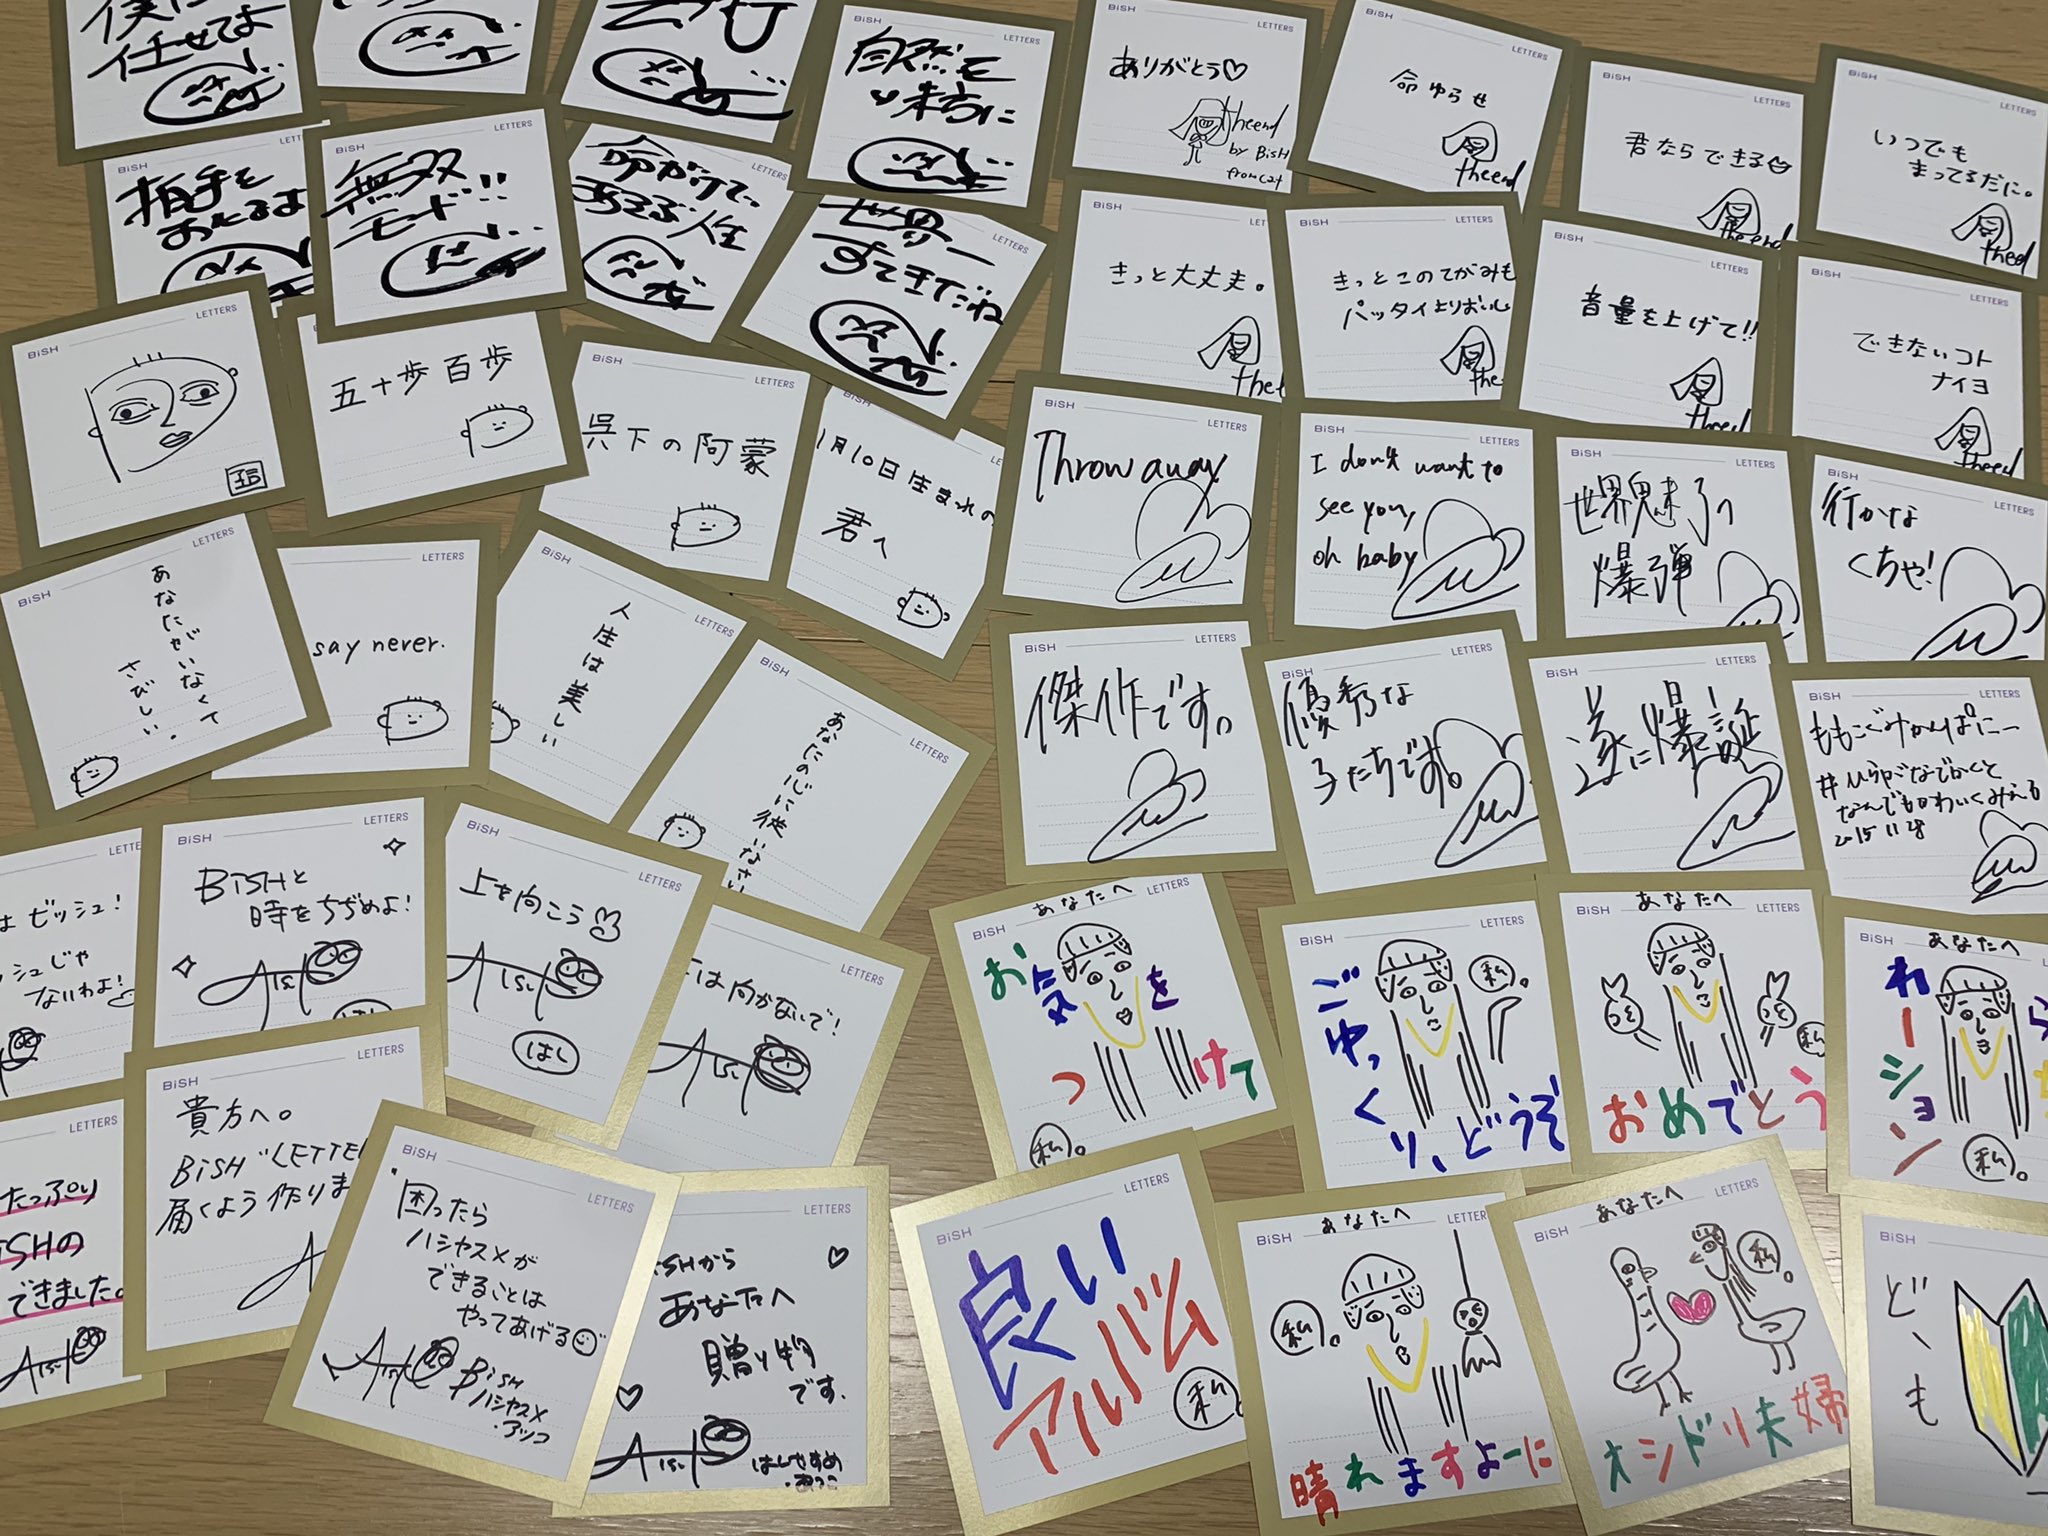 任せてよ
BiSH
LETTERS
自然を
味方に
BiSH
LETTERS
ありがとう♡
theend
by BiSH
from cat
BiSH
LETTERS
命ゆらせ
theend
BiSH
LETTERS
君ならできる
the end
BiSH
LETTERS
いつでも
まってるだに。
theend
BiSH
LETTERS
拍手を
BiSH
LETTERS
無双
モード!!
LETTERS
命がけで、
あそぶ人生
LETTERS
世界一
すてきだね
BiSH
きっと大丈夫。
BiSH
LETTERS
きっとこのてがみも
パッタイよりおいし
the
BiSH
LETTERS
音量を上げて!!
theend
BiSH
LETTERS
できないコト
ナイヨ
theend
BiSH
LETTERS
LETTERS
五十歩百歩
BiSH
LETTERS
呉下の阿蒙
BiSH
1月10日生まれの
君へ
BiSH
LETTERS
Throw away
BiSH
LETTERS
I don't want to
see you,
oh baby
BiSH
LETTERS
世界魅了
爆弾
BiSH
LETTERS
行かな
くちゃ!
BiSH
LETTERS
あなたがいなくて
さびしい。
LETTERS
say never.
BiSH
LETTERS
人生は美しい
BiSH
LETTERS
あなたの心に従いなさい
BiSH
LETTERS
傑作です。
BiSH
LETTERS
優秀な
子たちです。
BiSH
LETTERS
遂に爆誕
BiSH
LETTERS
ももこぐみかんぱにー
なんでもかわいくみえる
2015 11 28
はビッシュ!
ッシュじゃ
ないわよ!
BiSH
LETTERS
BiSHと
時をちぢめよ!
はし
BiSH
LETTERS
上を向こう
はし
LETTERS
は向かないで!
BiSH
LETTERS
あなたへ
お気をつけて
私。
BiSH
LETTERS
ごゆっくり、どうぞ
私。
BiSH
LETTERS
あなたへ
おめでとう
私
BiSH
あなたへ
わーら
ション
私。
LETTERS
たっぷり
iSHの
できました。
BiSH
LETTERS
貴方へ。
BiSH "LETTE
届くよう作りま
BiSH
LETTERS
困ったら
ハシヤスメが
できることは
やってあげる
BiSH
ハシヤスメ
・アツコ
LETTERS
iSHから
あなたへ
贈り物
です。
はしやすめ
・あつこ
BiSH
LETTERS
良い
アルバム
私。
BiSH
あなたへ
LETTER
私。
晴れますよーに
BiSH
LETTERS
あなたへ
私。
オシドリ夫婦
BiSH
ど、も